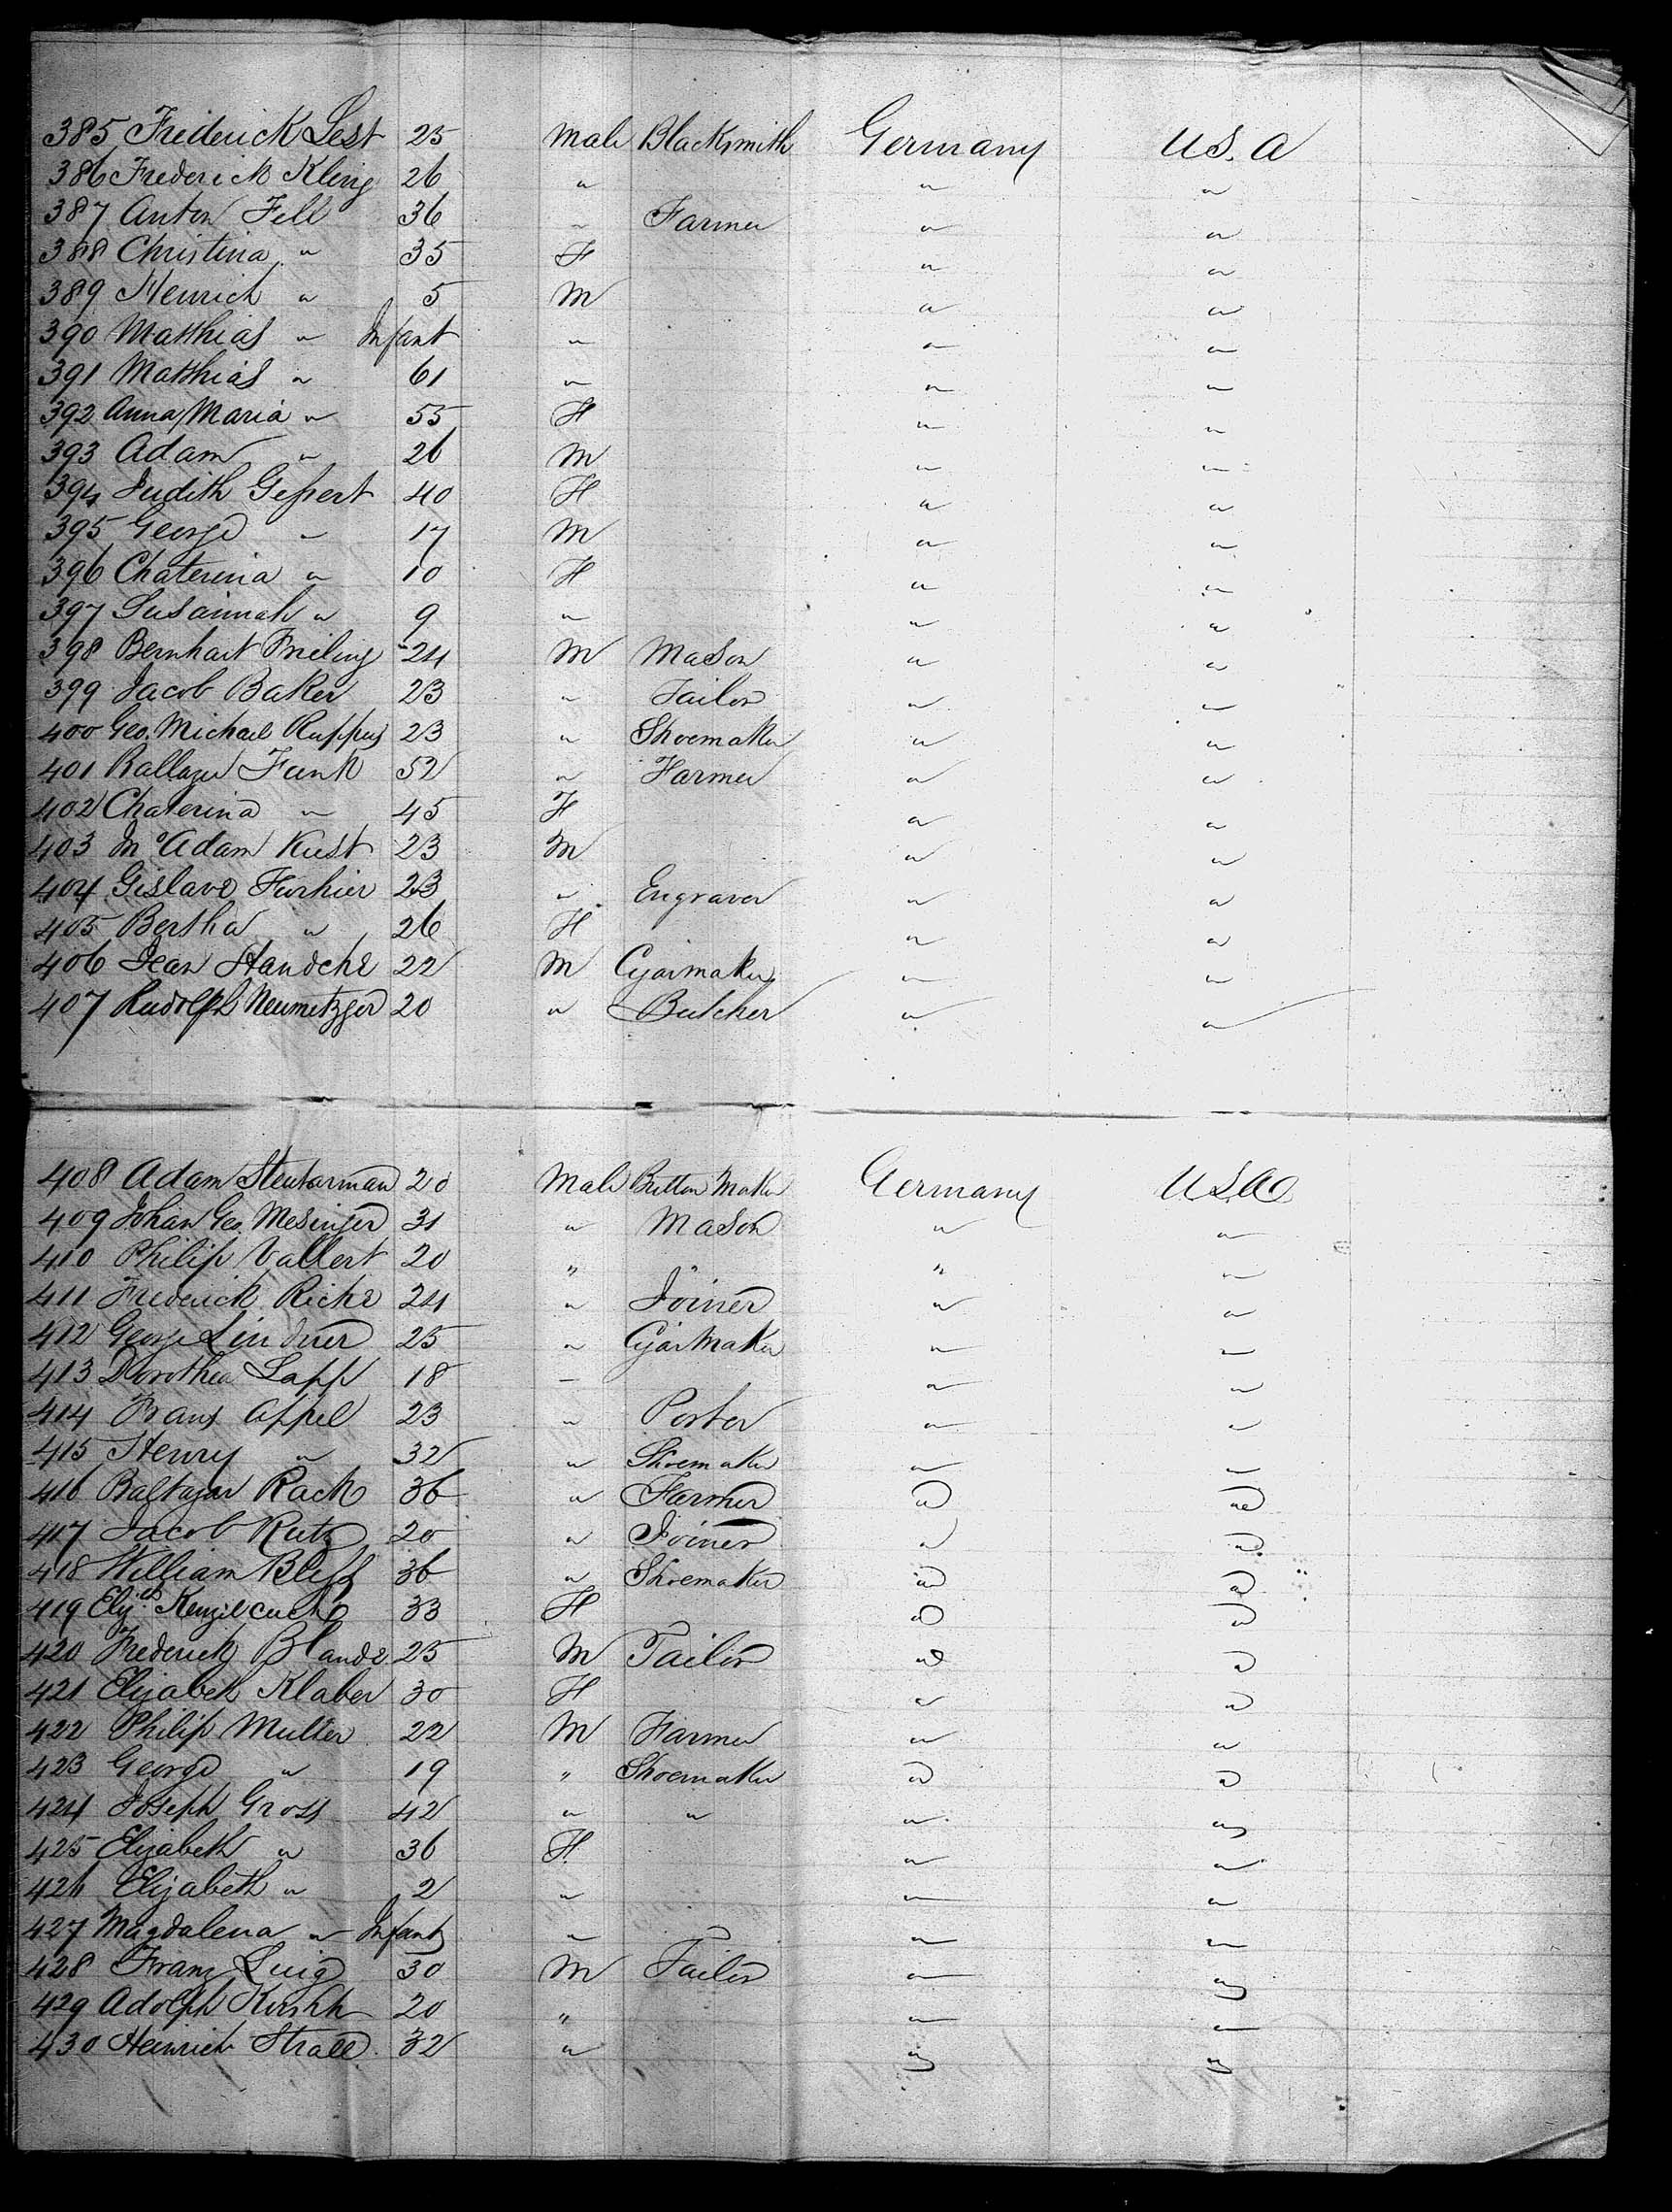 385 Friderick Lest 25 Male Blacksmith Germany U.S.A
386 Frederick Kling 26 " " "
387 Anton Fell 36 " Farmer " "
388 Christina " 35 F " "
389 Henrich " 5 M " "
390 Matthias " Infant " " "
391 Matthias " 61 " " "
392 Anna Maria " 55 F " "
393 Adam " 26 M " "
394 Judith Gessert 40 F " "
395 George " 17 M " "
396 Chaterina " 10 F " "
397 Susannah " 9 " " "
398 Bernhart Frieling 24 M Mason " "
399 Jacob Baker 23 " Tailor " "
400 Geo. Michael Ruppus 23 " Shoemaker " "
401 Funk 52 " Farmer " "
402 Chaterina " 45 F " "
403 Adam Kust 23 M " "
404 Gislave 23 " Engraver " "
405 Bertha " 26 F " "
406 Jean Handche 22 M Cijarmaker " "
407 Rudolph Neumetzger 20 " Butcher " "
408 Adam Steutarman 20 Male Button Maker Germany USA
409 Johan Geo. Mesinger 31 " Mason " "
410 Philip Vallert 20 " " " "
411 Frederick Riche 24 " Joiner " "
412 George Lindner 25 " Cijar Maker " "
413 Dorothea Lapp 18 " " "
414 Franz Appel 23 " Porter " "
415 Henry " 32 " Shoemaker " "
416 Baltazar Rack 36 " Farmer " "
417 Jacob Rutz 20 " Joiner " "
418 William Bless 36 " Shoemaker " "
419 Eliz.th 33 F " "
420 Frederick Blande 25 M Tailor " "
421 Elizabeth Klaber 30 F " "
422 Philip Multer 22 M Farmer " "
423 George " 19 " Shoemaker " "
424 Joseph Gross 42 " " " "
425 Elizabeth " 36 F " "
426 Elizabeth " 2 " " "
427 Magdalena " Infant " " "
428 Franz Luig 30 M Tailor " "
429 Adolph 20 " " "
430 Heinrich Strall 32 " " "